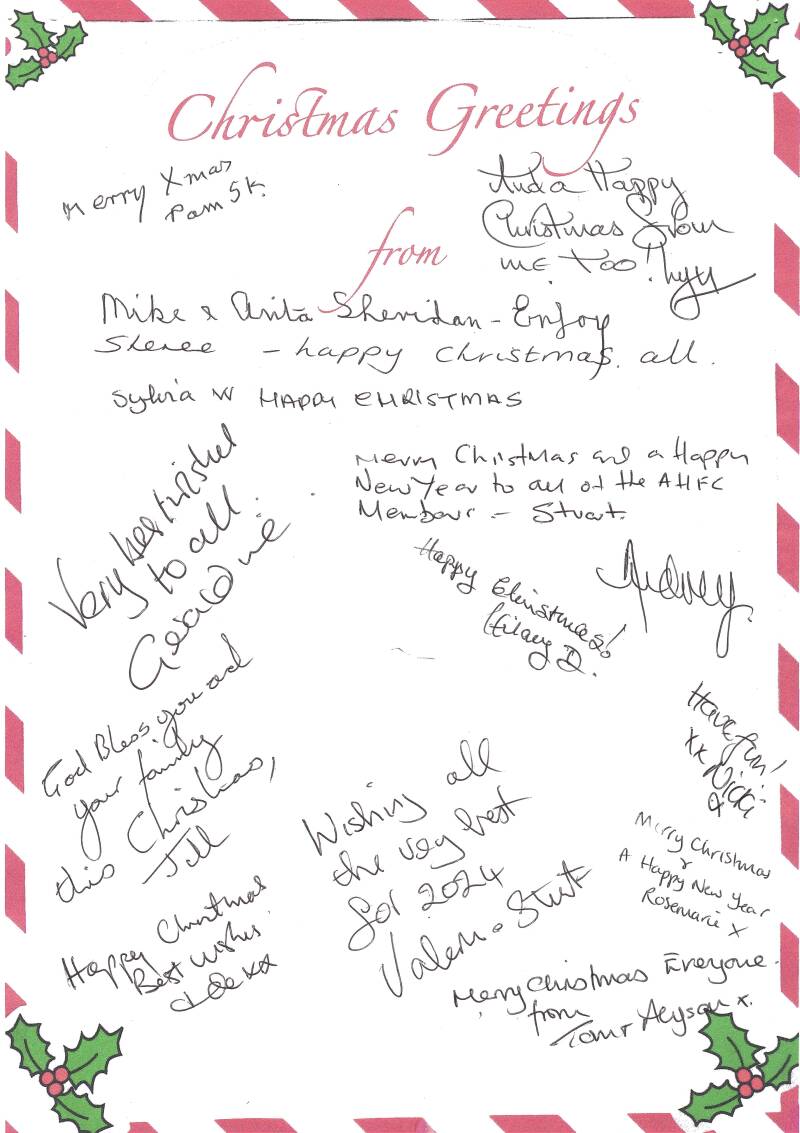 Christmas Greetings
Merry Xmas
Pam S K.
And a Happy
Christmas from
me too!
from
Mike & Anita Sheridan - Enjoy
Sheree - happy Christmas all.
Sylvia W HAPPY CHRISTMAS
Very best wishes
to all.
Geraldine
Merry Christmas and a Happy
New Year to all of the AHFC
Members - Stuart.
Happy Christmas!
Hilary D.
Audrey
God Bless you and
your family
this Christmas,
Jill
Have fun!
xx Nicki
x
Wishing all
the very best
for 2024
Valerie & Stuart
Merry Christmas
&
A Happy New Year
Rosemarie x
Happy Christmas
Best wishes.
xx
Merry Christmas Everyone.
from
Tom & Alyson x.